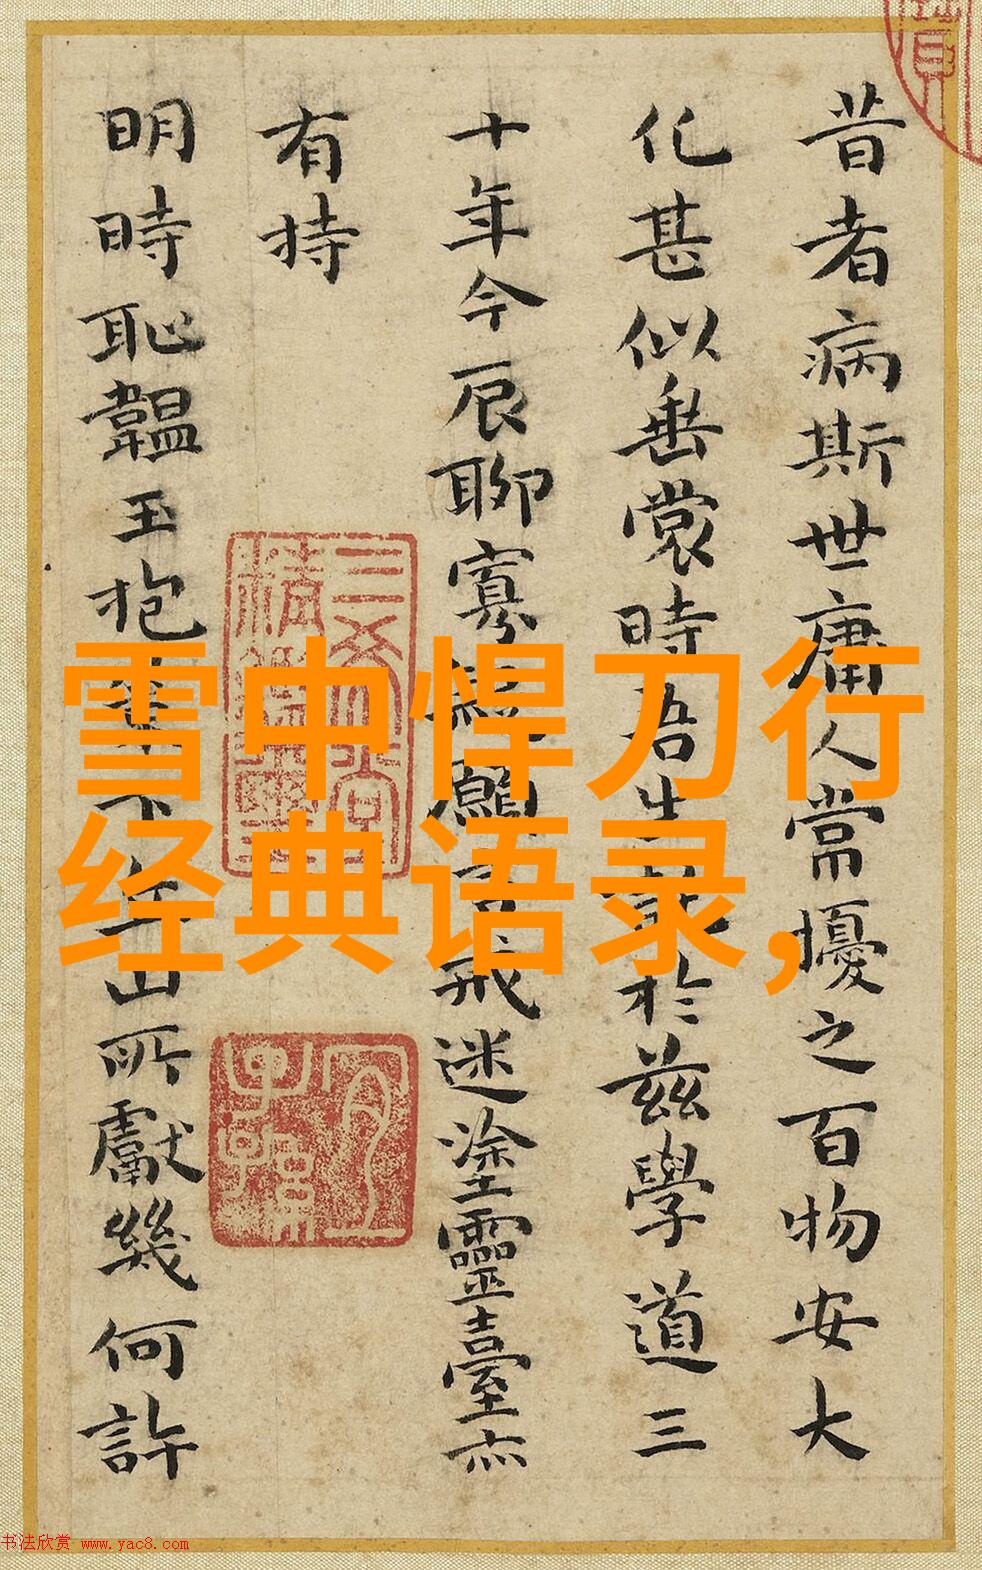 昔者病斯世庸人常擾之百物安大
化甚似垂裳時吾生於兹學道三
十年今辰聊寡願戒迷塗靈臺亦
有持
明時恥韞玉抱下年山所獻幾何許
雪中悍刀行
经典语录,
书法欣赏 www.yac8.com